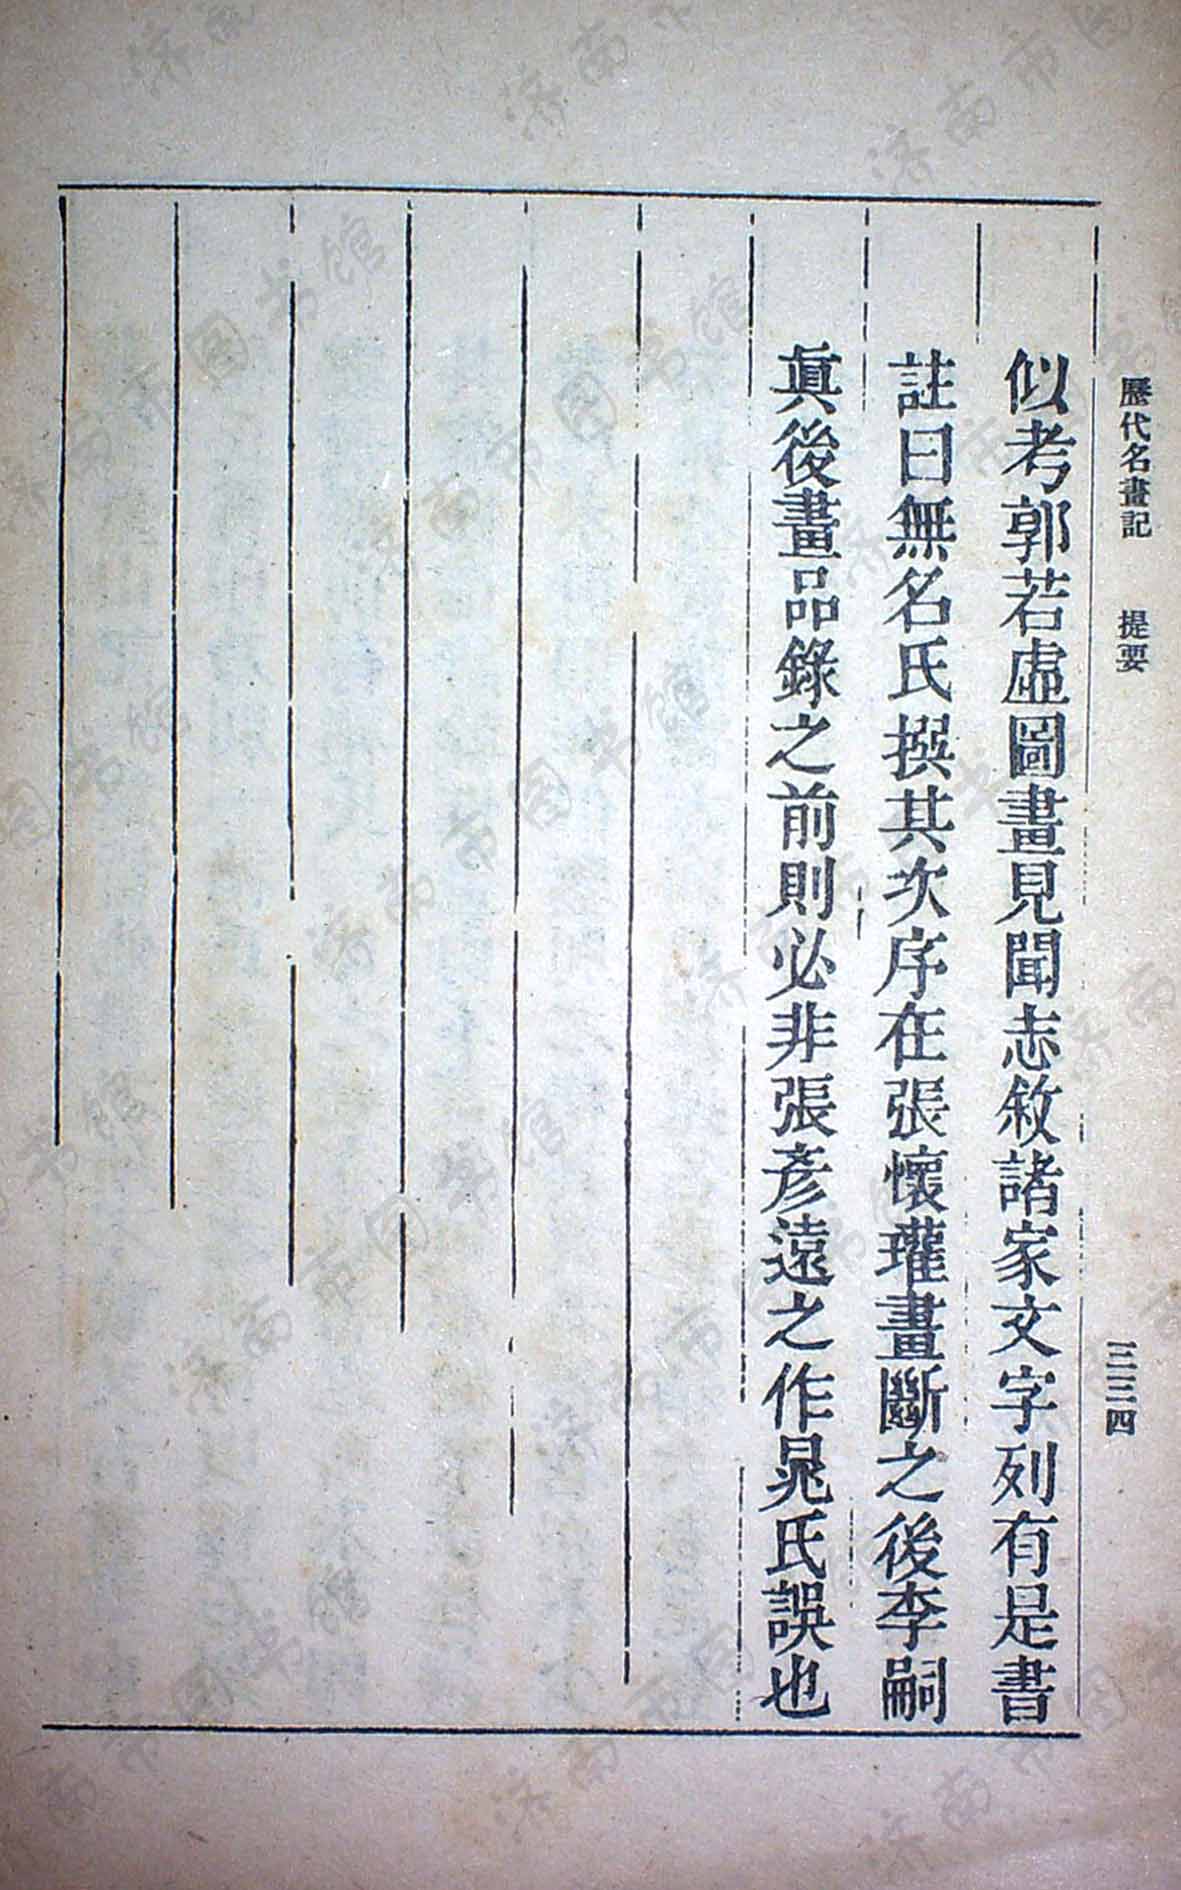 歷代名畫記　提要　三三四
似考郭若虛圖畫見聞志敘諸家文字列有是書
註曰無名氏撰其次序在張懷瓘畫斷之後李嗣
眞後畫品錄之前則必非張彥遠之作晁氏誤也
济南市图书馆